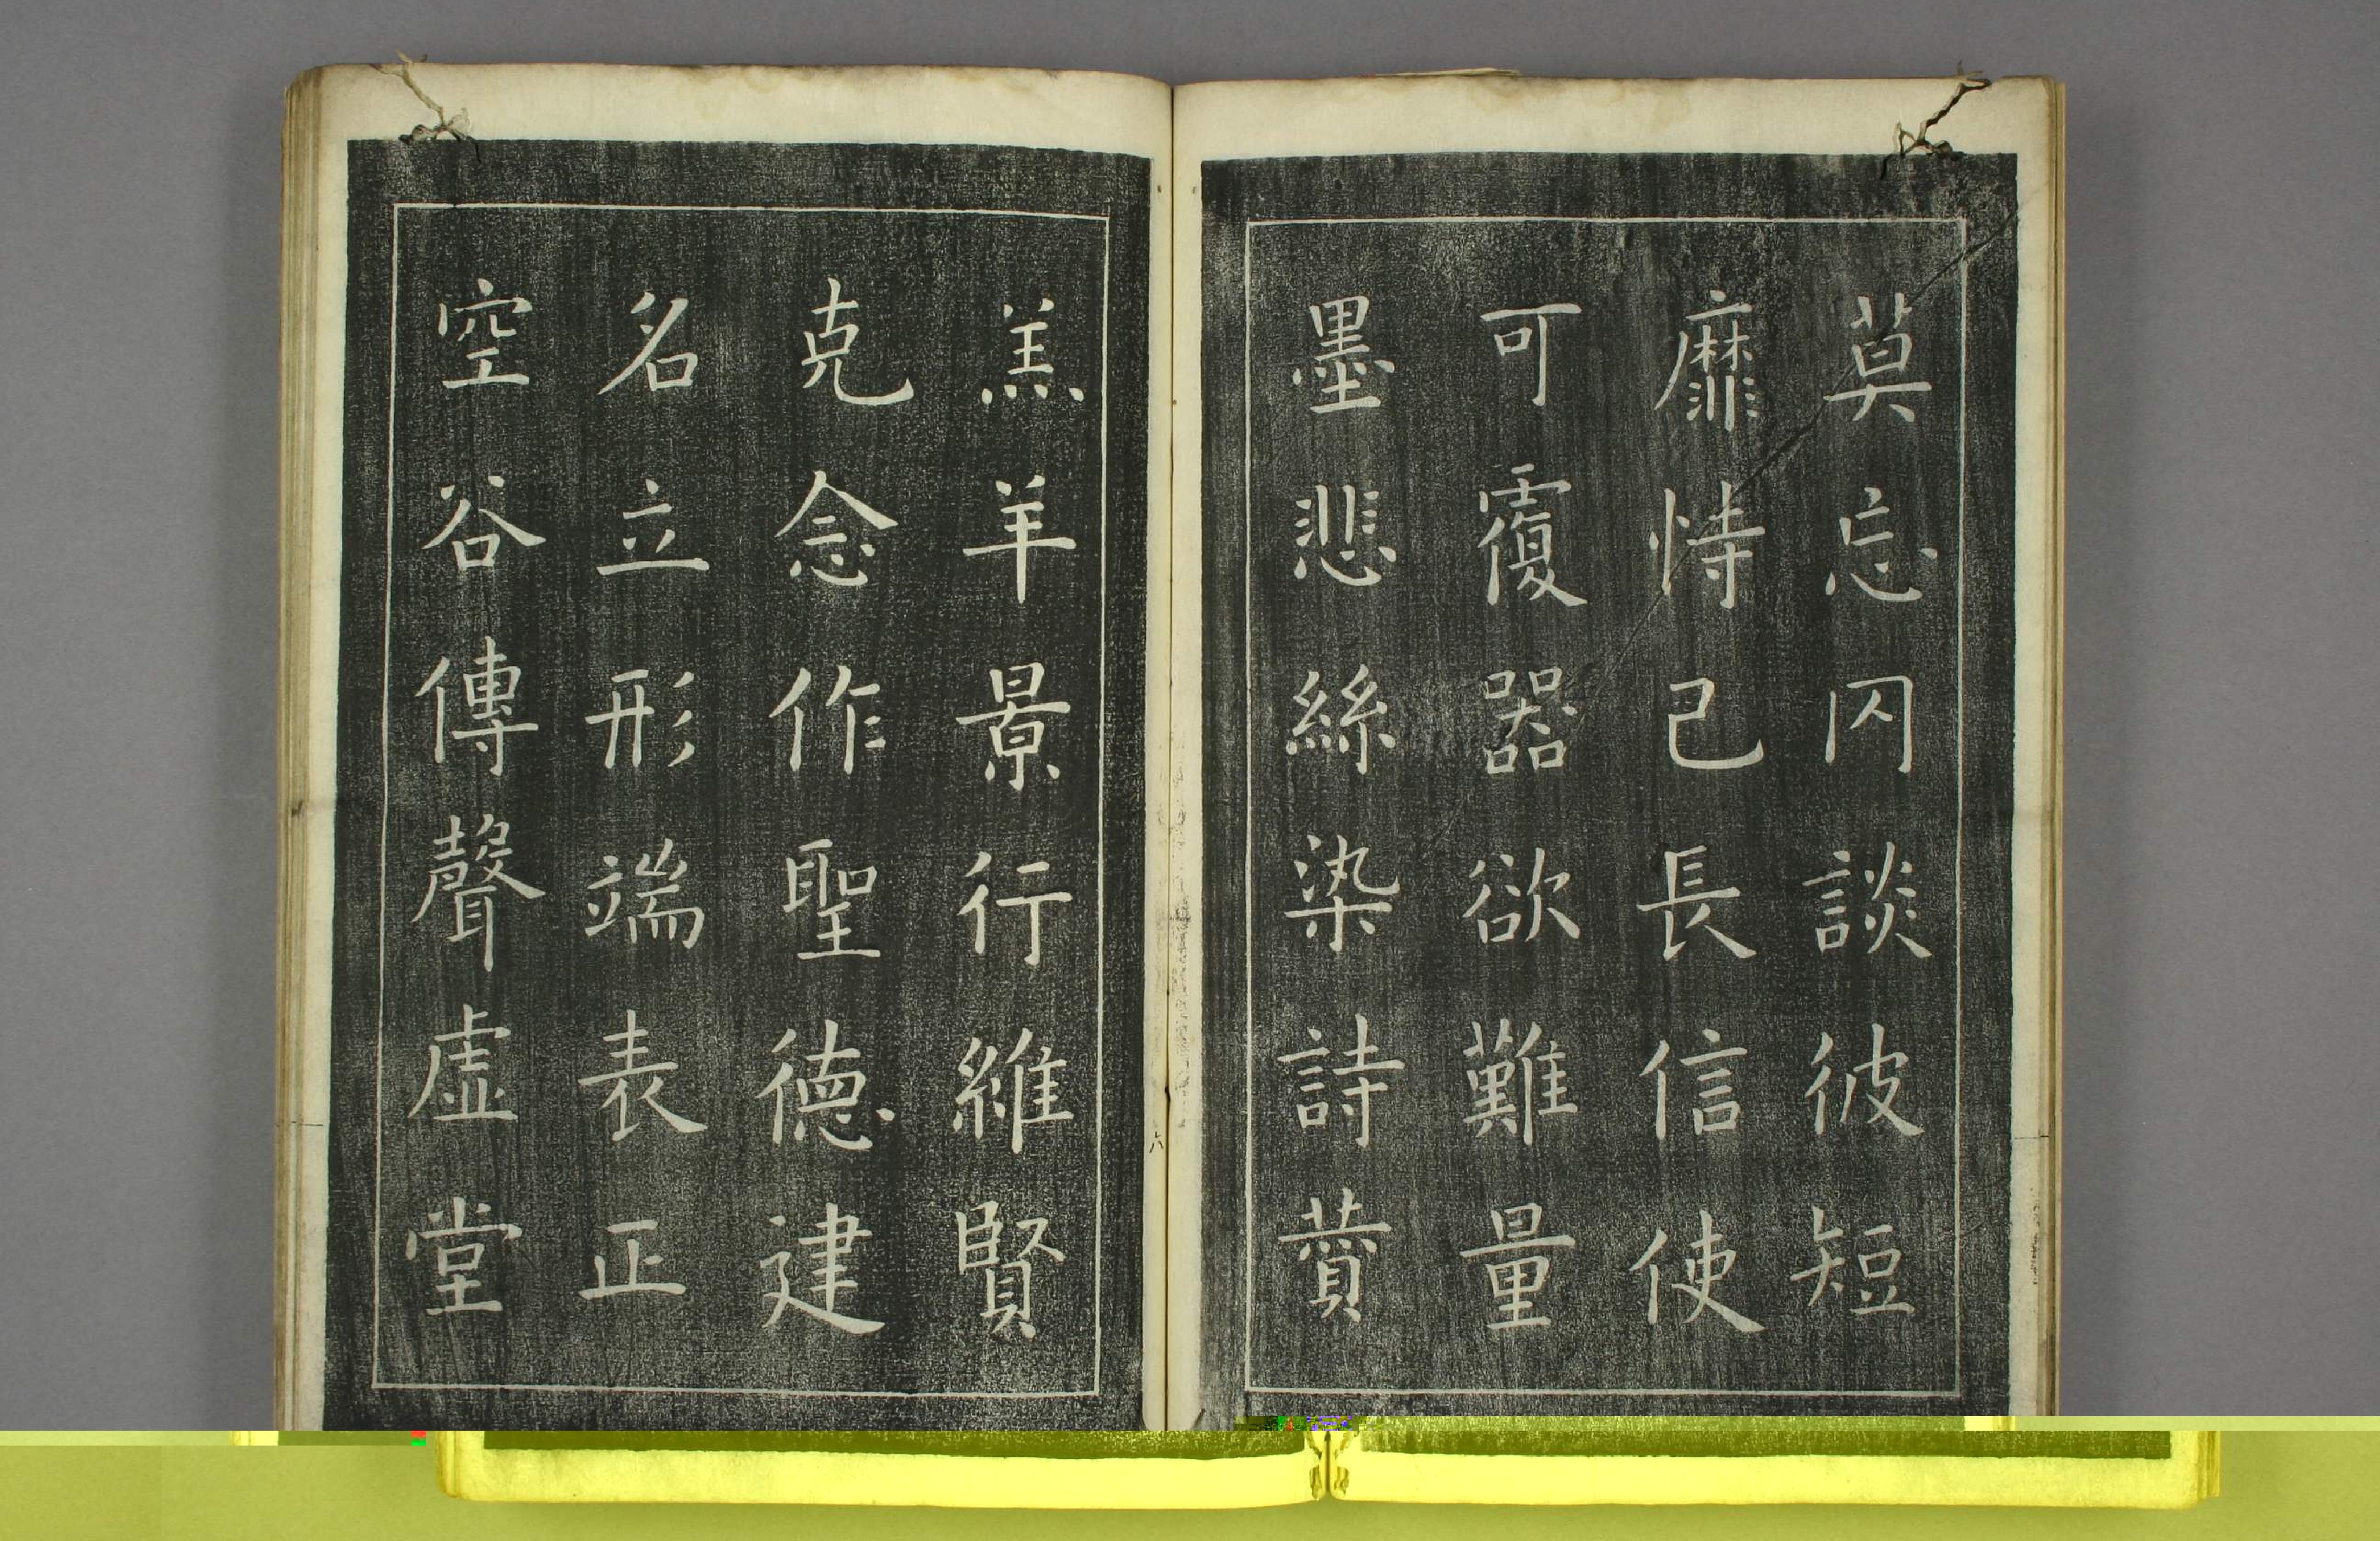 莫忘罔談彼短
靡恃己長信使
可覆器欲難量
墨悲絲染詩蕡
羔羊景行維賢
克念作聖德建
名立形端表正
空谷傳聲虛堂
六